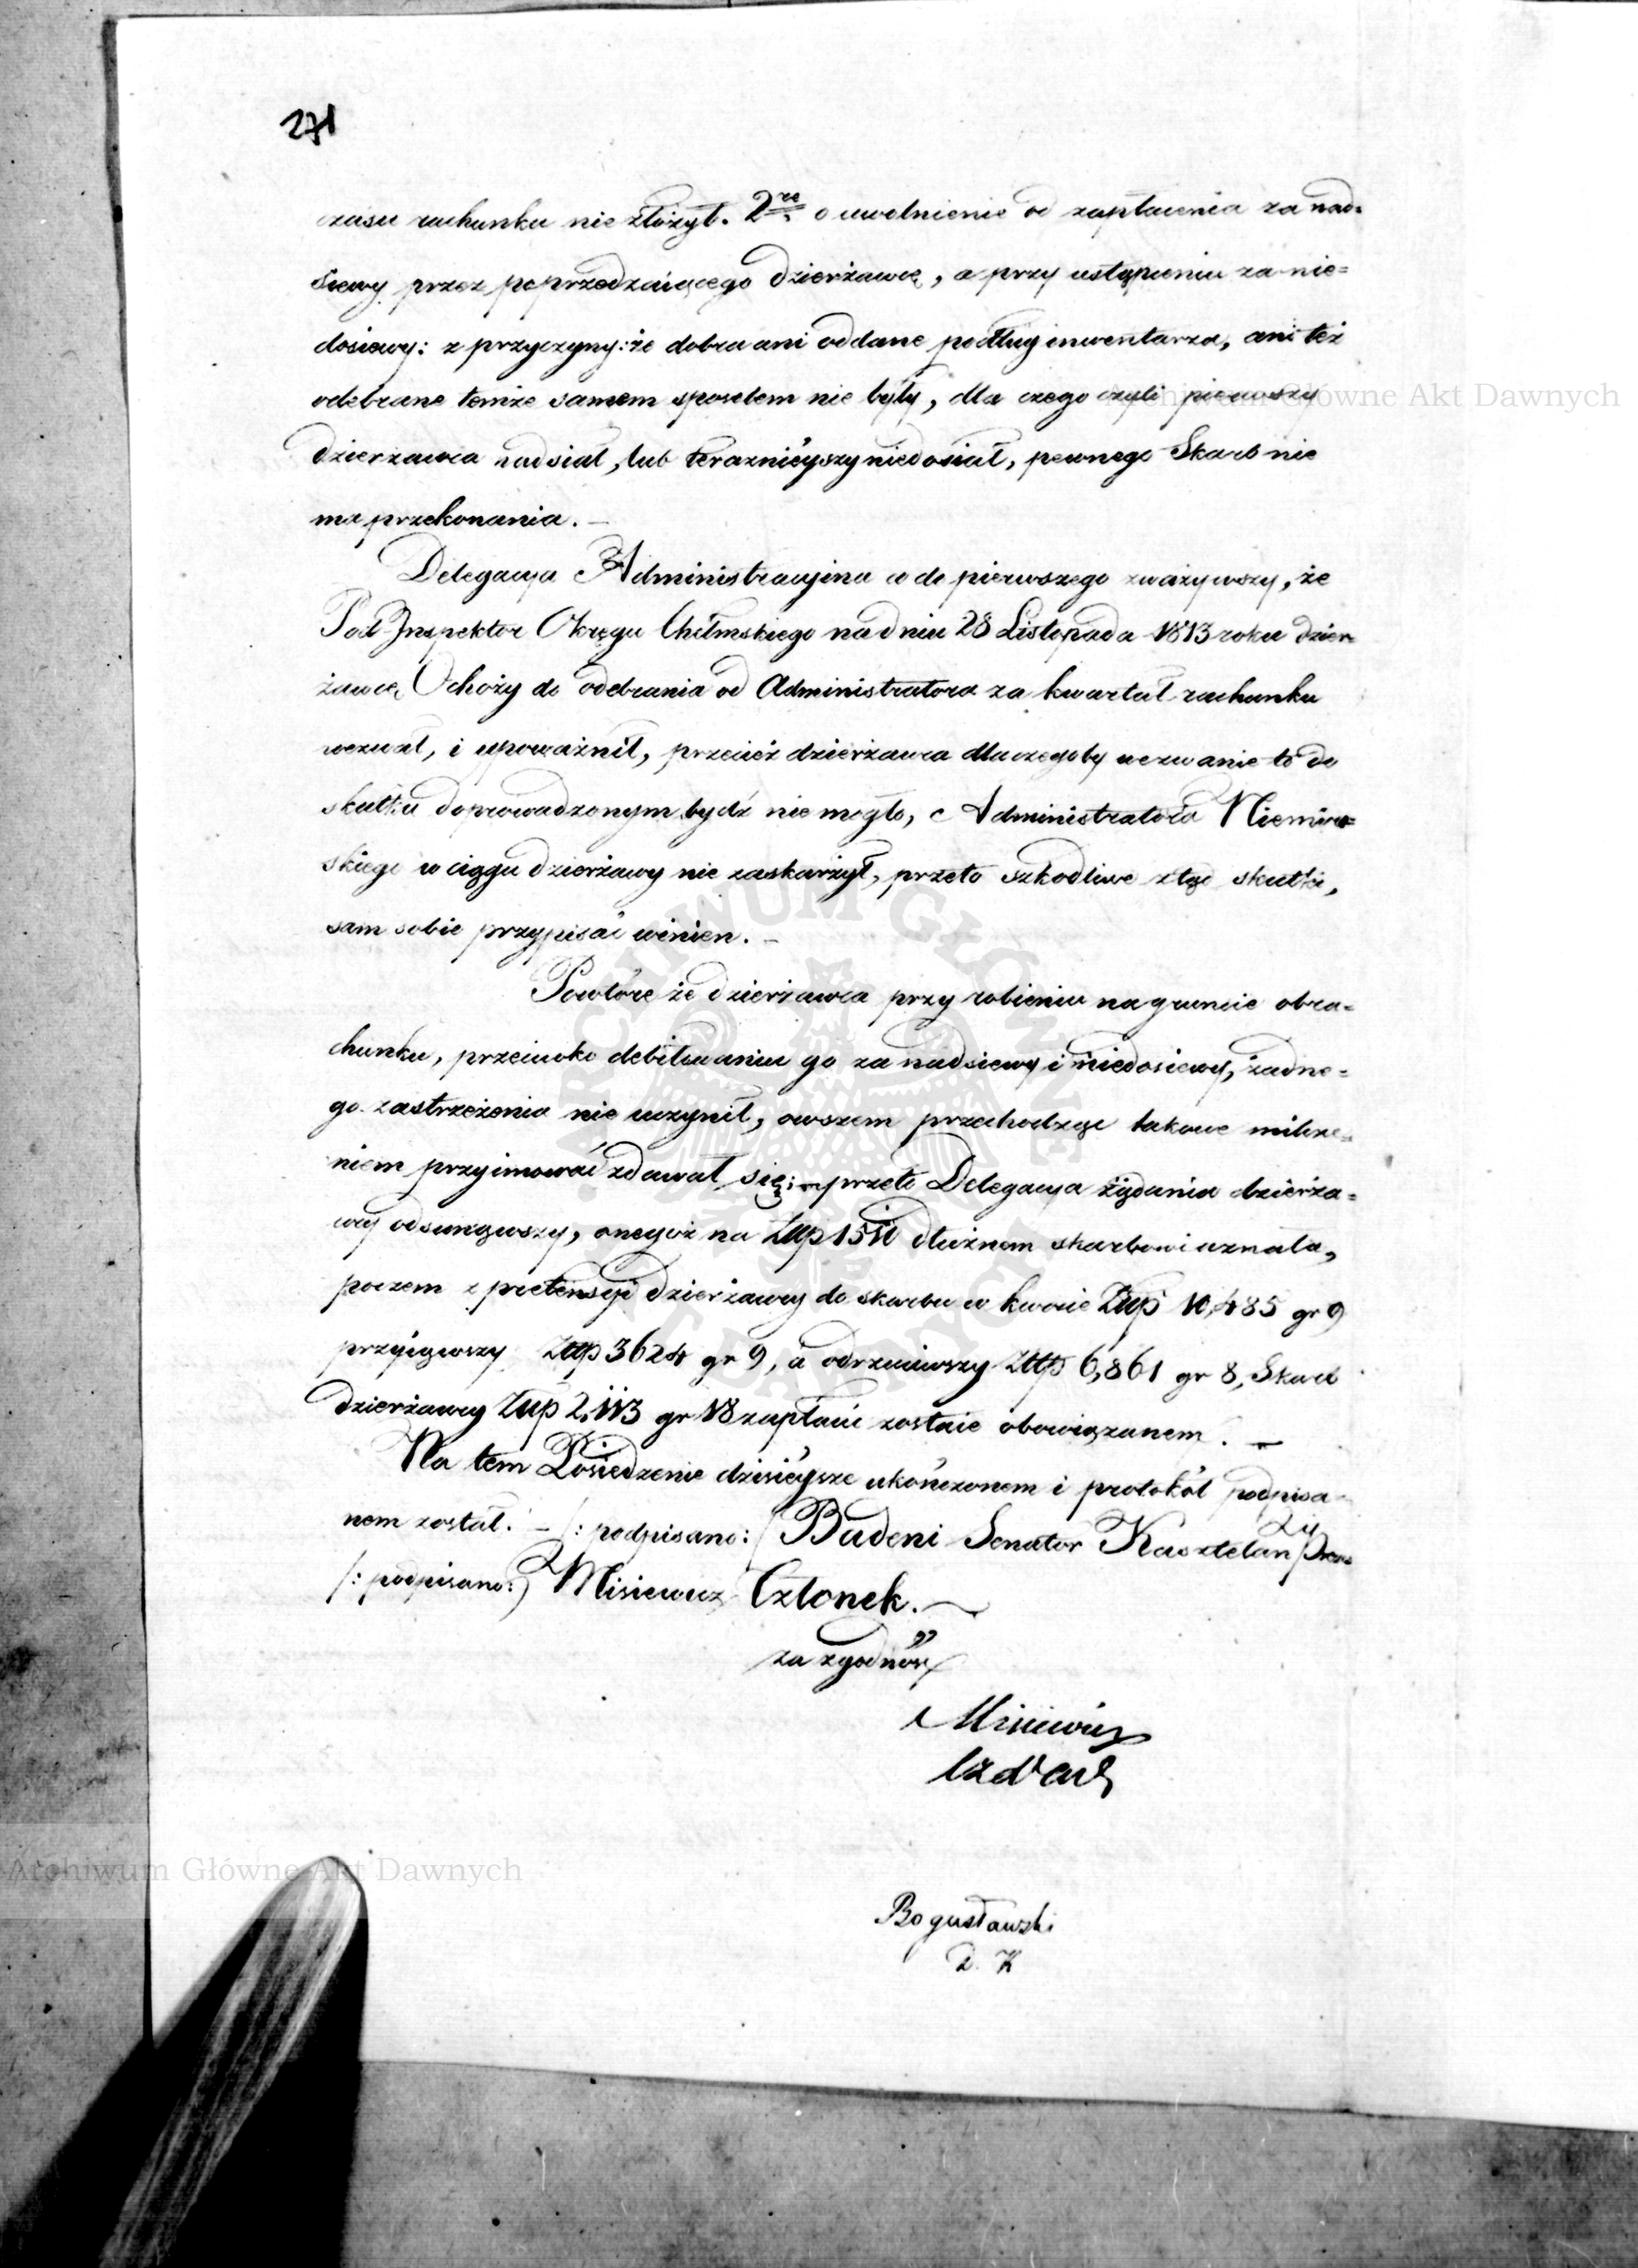 271
czasu rachunku nie złożył. 2re o uwolnienie od zapłacenia za nad=
siewy przez poprzedzaiącego dzierżawcę, a przy ustąpieniu za nie=
dosiewy: z przyczyny: że dobra ani oddane podług inwentarza, ani też
odebrane temże samem sposobem nie były, dla czego czyli pierwszy
dzierzawca nadsiał, lub teraznieyszy niedosiał, pewnego Skarb nie
ma przekonania. —
Delegacya Administracyina co do pierwszego zważywszy, że
Pod-Inspektor Okręgu Chełmskiego na dniu 28 Listopada 1813 roku dzier=
żawcę Ochoży do odebrania od Administratora za kwartał rachunku
wezwał, i upoważnił, przecież dzierżawca dlaczegoby wezwanie to do
skutku doprowadzonym bydź nie mogło, Administratora
skiego w ciągu dzierżawy nie zaskarżył, przeto szkodliwe ztąd skutki,
sam sobie przypisać winien. —
Powtóre że dzierżawca przy robieniu na gruncie obra=
chunku, przeciwko debitowaniu go za nadsiewy i niedosiewy, żadne=
go zastrzeżenia nie uczynił, owszem przechodząc takowe milcze=
niem przyimować zdawał się; przeto Delegacya żądania dzierża=
wcy odsunąwszy, onegoż na Złłp dłużnem skarbowi uznała,
poczem z pretensyi dzierżawcy do skarbu w kwocie Złłp 10,485 gr 9
przyiąwszy Złłp 3624 gr 9, a odrzuciwszy Złłp 6,861 gr 8, Skarb
dzierżawcy Złłp 2,113 gr 18 zapłacić zostaie obowiązanem. —
Na tem Posiedzenie dzisieysze ukończonem i protokół podpisa=
nem został. — /: podpisano: / Badeni Senator Kasztelan Prezu
/: podpisano:) Misiewicz Członek.
za zgodność
Misiewicz
Bogusławski
D. K
Archiwum Główne Akt Dawnych
Archiwum Główne Akt Dawnych
ARCHIWUM GŁÓWNE AKT DAWNYCH